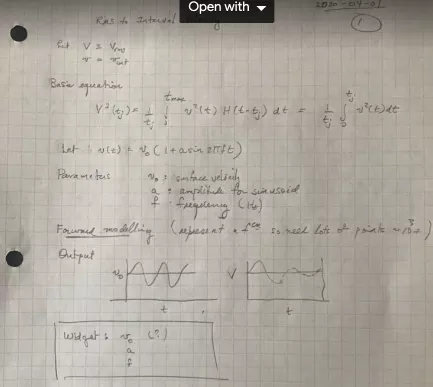 Open with
2020-04-01
1
Rms to Interval
Let V ≡ Vrms
v = vint
Basic equation
V²(tj) = 1/tj ∫₀^tmax v²(t) H(t-tj) dt = 1/tj ∫₀^tj v²(t) dt
Let : v(t) = v₀ (1 + a sin 2πft)
Parameters v₀ : surface velocity
a : amplitude for sinusoid
f : frequency (Hz)
Forward modelling (represent a fcn is need lots of points
Output
v₀ V
t t
Widgets v₀ (?)
a
f